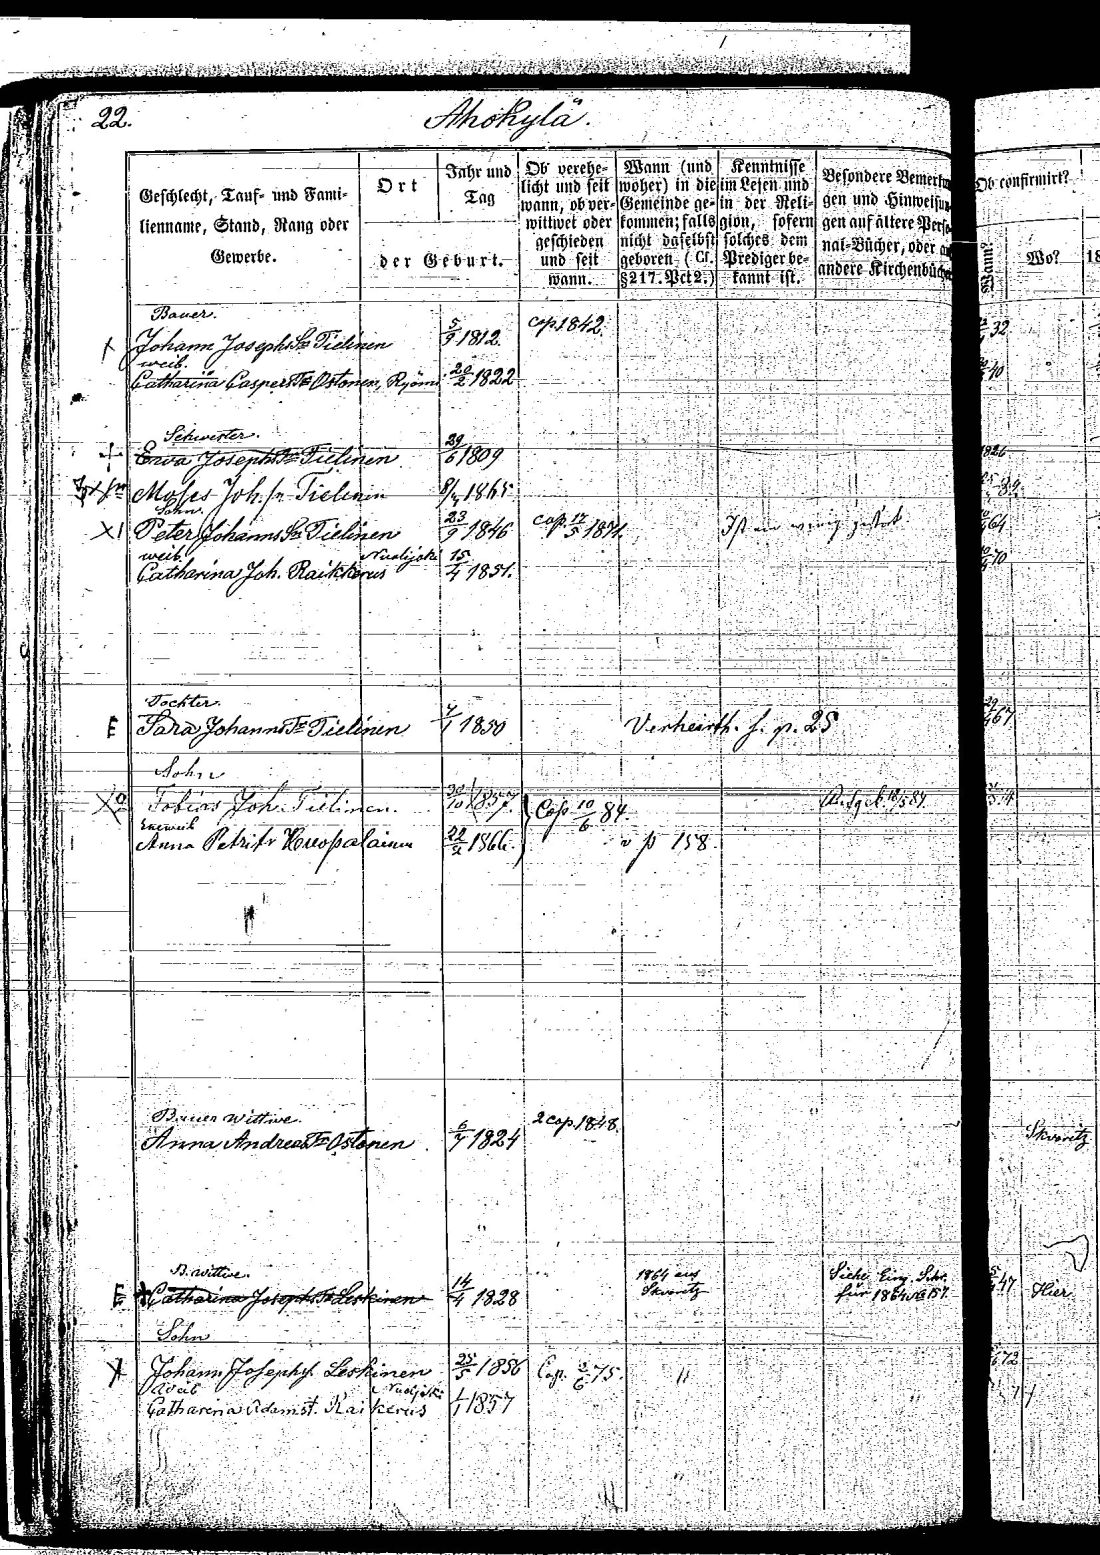 22. Ahokylä.
Geschlecht, Tauf- und Fami-
lienname, Stand, Rang oder
Gewerbe.
Ort
der Geburt.
Jahr und
Tag
Ob verehe-
licht und seit
wann, ob ver-
wittwet oder
geschieden
und seit
wann.
Wann (und
woher) in die
Gemeinde ge-
kommen; falls
nicht daselbst
geboren (Cf.
§217. Pct 2.)
Kenntnisse
im Lesen und
in der Reli-
gion, sofern
solches dem
Prediger be-
kannt ist.
Besondere Bemerku
gen und Hinweisun
gen auf ältere Perso
nal-Bücher, oder a
andere Kirchenbüch
Ob confirmirt?
Wann?
Wo?
18
Bauer.
Johann Josephs Sn Tielinen 5/9 1812. cop. 1842. 32
weib.
Catharina Caspers Tr Ostonen, 20/2 1822 40
Schwester.
Ewa Josephs Tr Tielinen 29/6 1809 1826
Moses Joh. sn Tielinen 1865
Sohn.
Peter Johanns Sn Tielinen 23/9 1846 cop. 17/5 1871. Ist ein wenig 64
weib. Nuolijoki
Catharina Joh. Raikkerus 15/4 1851. 70
Tochter.
E Sara Johanns Tr Tielinen 7/1 1850 Verheirth. s. p. 25 67
Sohn
Tobias Joh. Tielinen. 30/10 1857. Cop 10/6 84
Eheweib
Anna Petri tr Huopalainen 22/2 1866. v p 158.
Bauer Wittwe.
Anna Andreas Tr Ostonen 6/7 1824 2 cop. 1848. Skworitz
B. wittwe. 1864 aus Siehe Eing. Schr.
E Catharina Josephs Tr Leskinen 14/4 1828 Skworitz für 1864 47 Hier
Sohn
Johann Josephs. Leskinen 25/5 1856 Cop. 2/6 75. " 72
Weib Nuolijoki
Catharina Adamst. Raikerus 1/1 1857